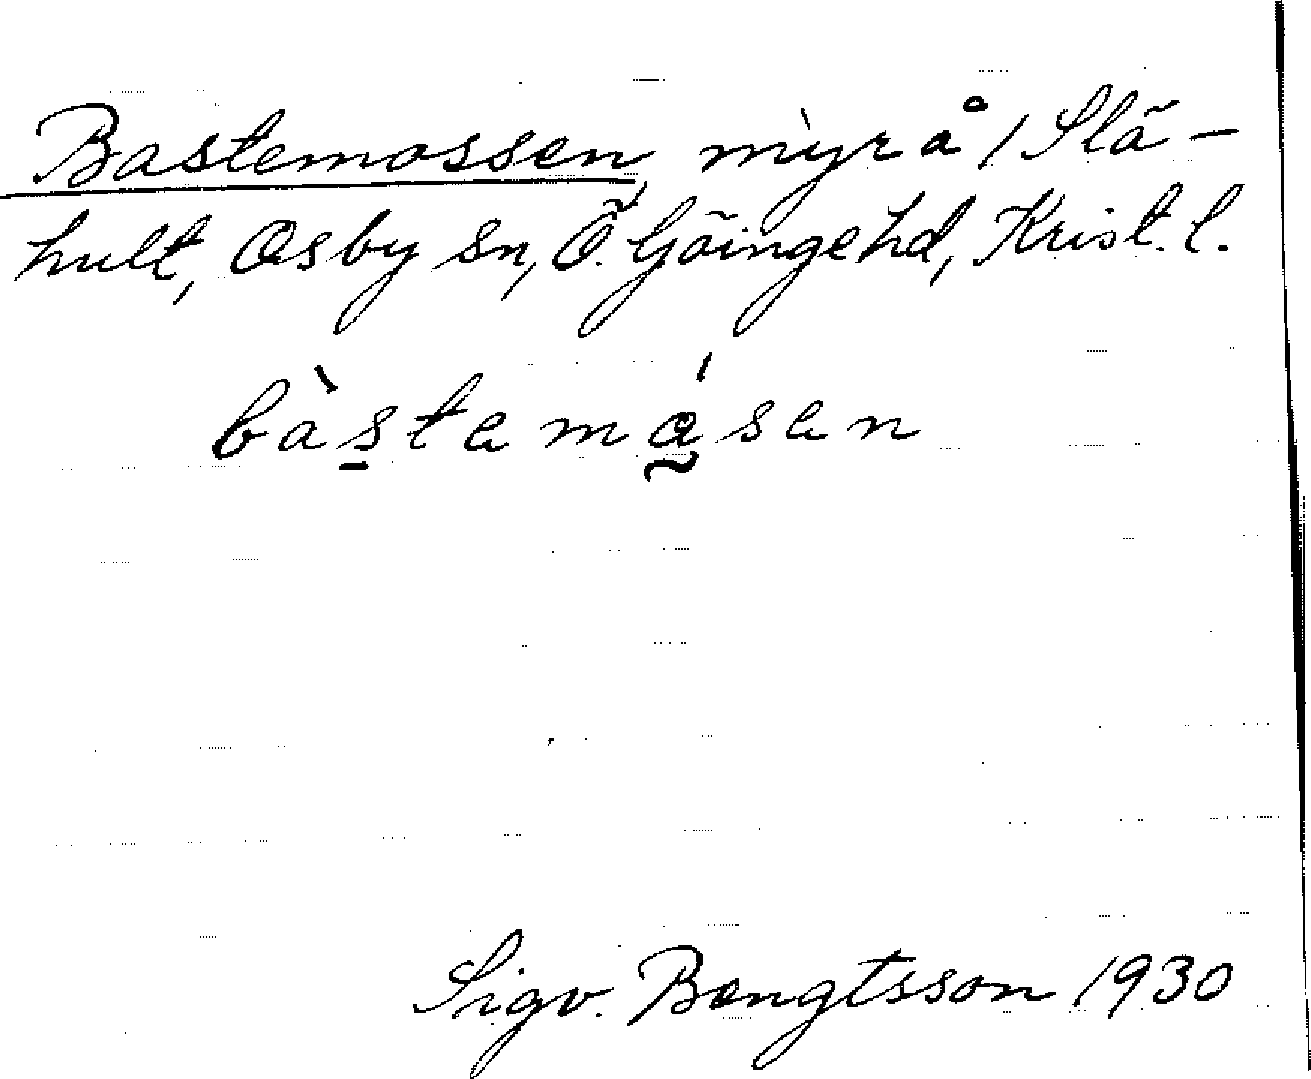 Bastemossen, myr å / Slä-
hult, Osby sn, Ö. Göinge hd, Krist. l.
bàstemásen
Sigv. Bengtsson 1930